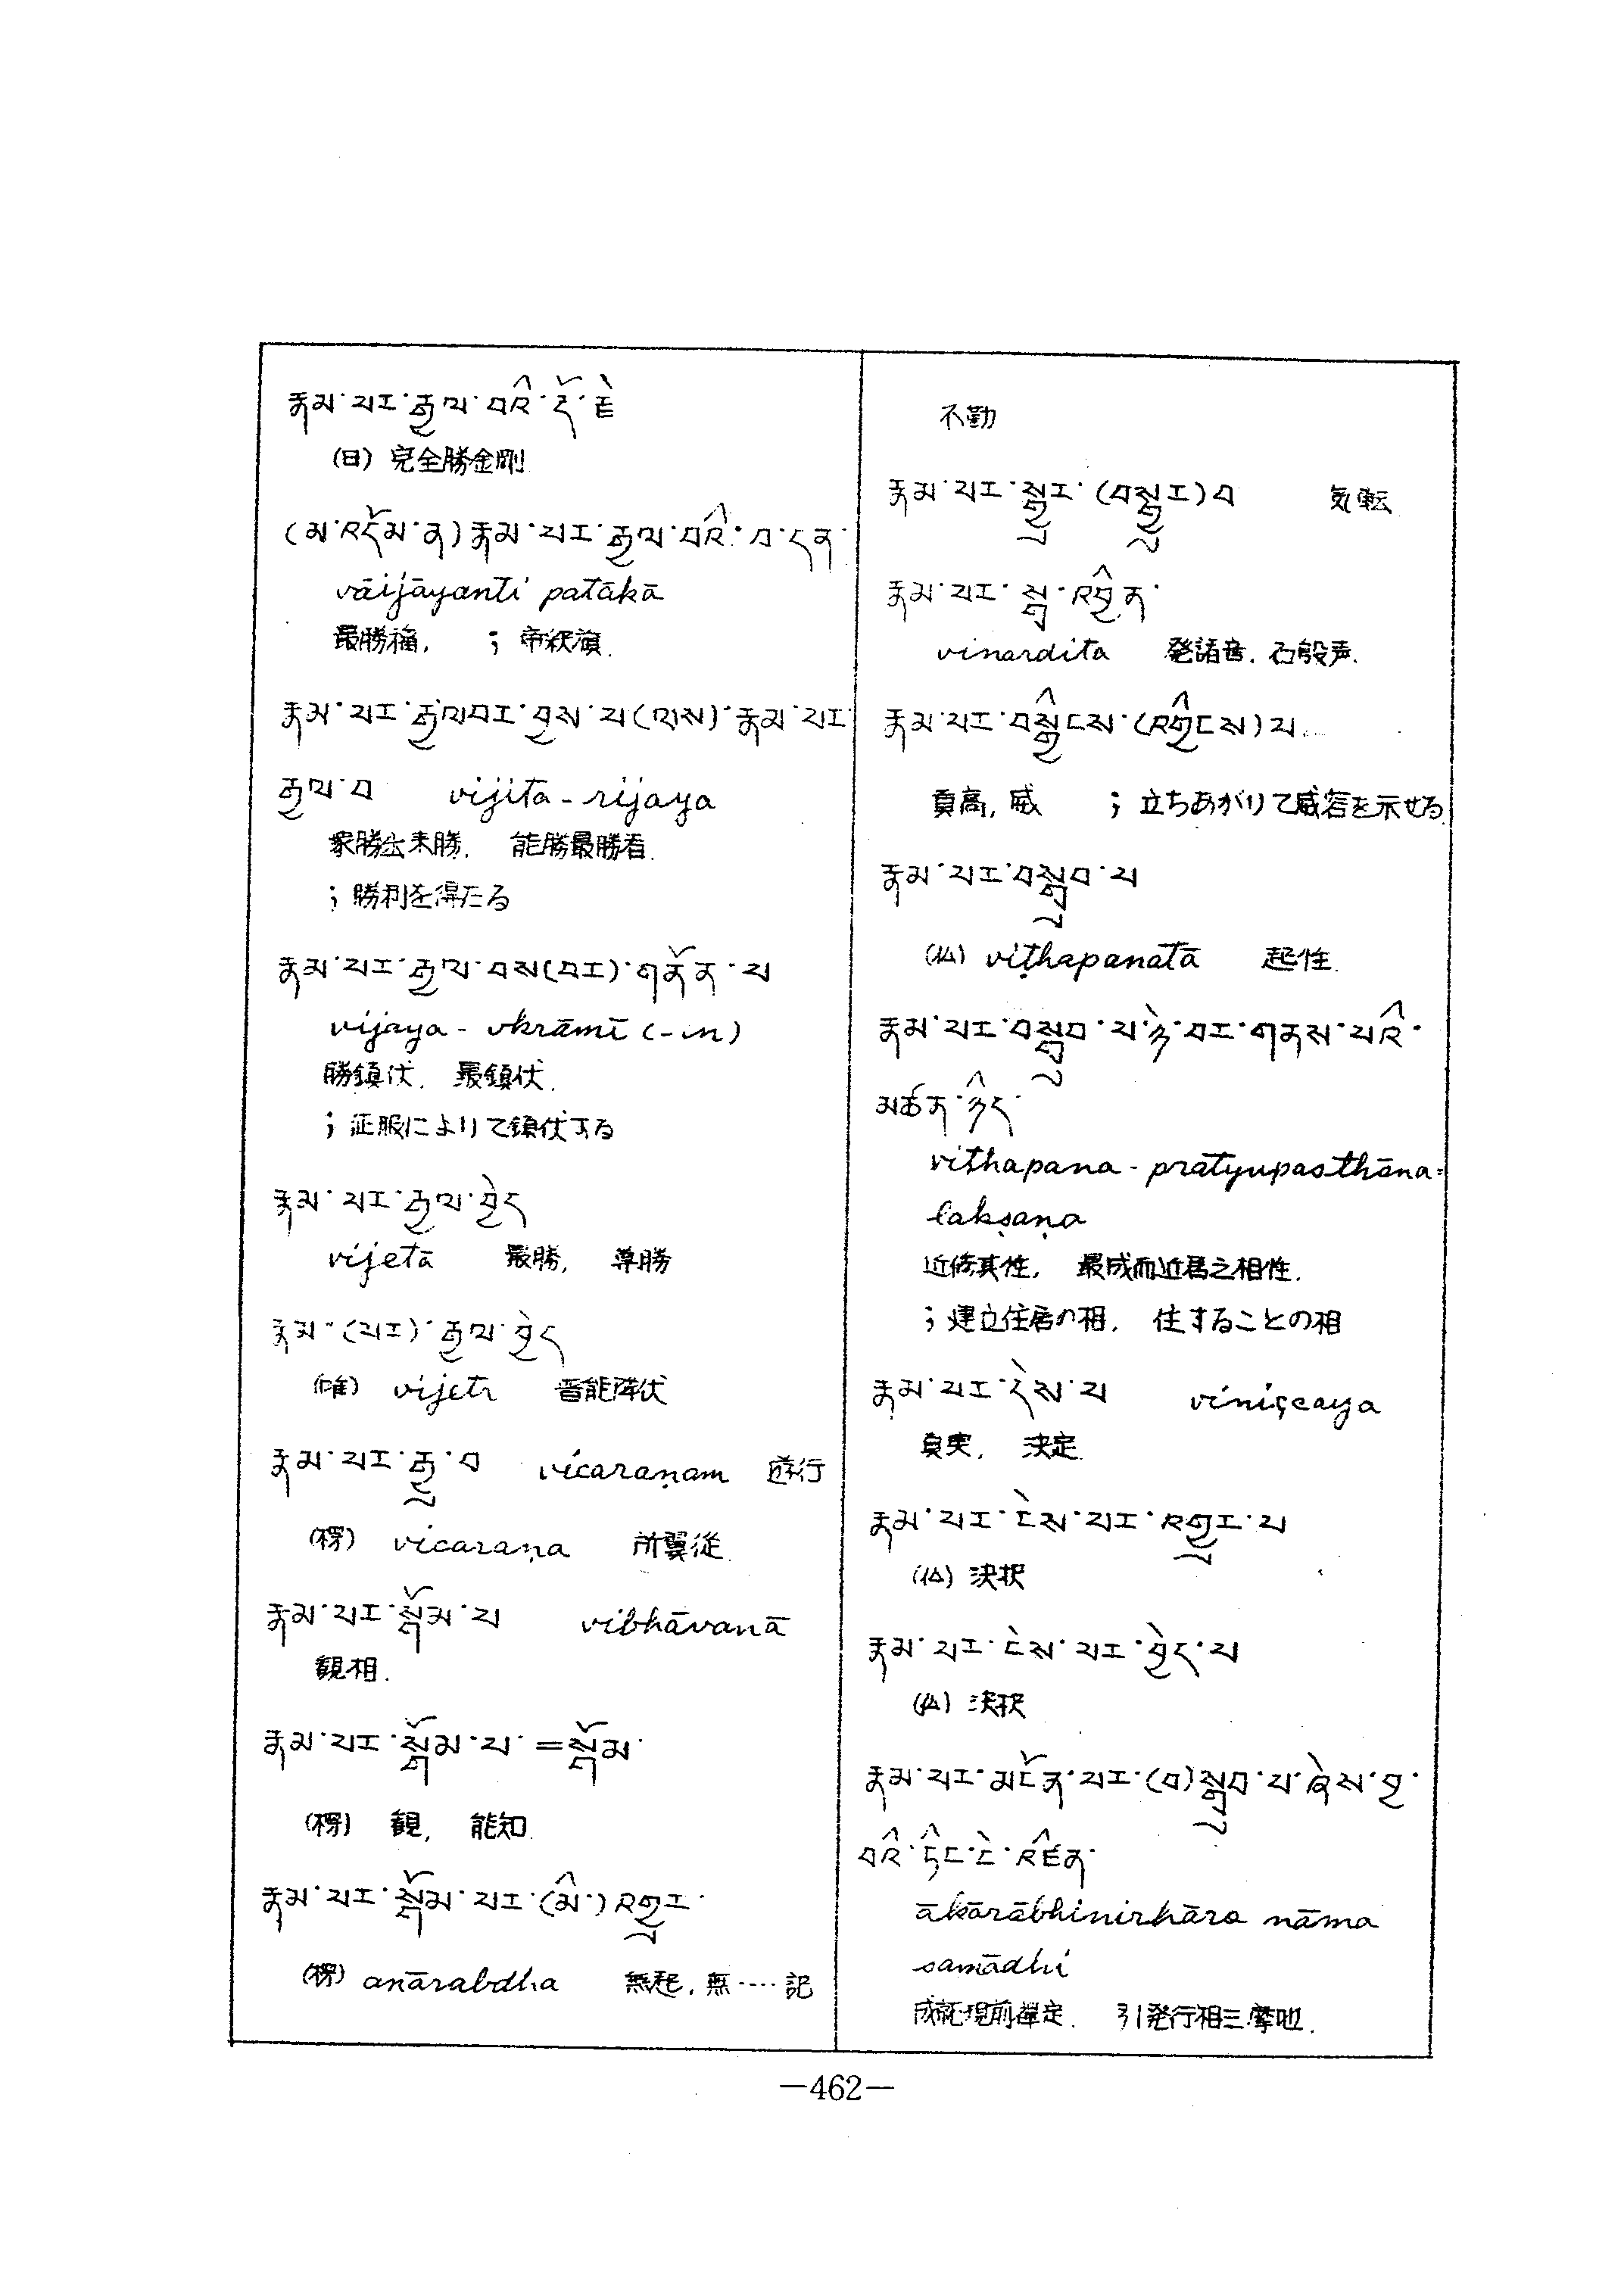 རྣམ་པར་རྒྱལ་བའི་རྡོ་རྗེ
(日) 完全勝金剛
(མ་འདོམ་ན)རྣམ་པར་རྒྱལ་བའི་བ་དན་
vāijāyanti patākā
最勝福, ; 帝釈旗.
རྣམ་པར་རྒྱལབར་བྱས་པ(ལས)་རྣམ་པར
རྒྱལ་བ vijita-rijaya
衆勝会来勝. 能勝最勝看.
; 勝利を得たる
རྣམ་པར་རྒྱལ་བས(བར)་གནོན་པ
vijaya-vkrāmī (-in)
勝鎮伏. 最鎮伏.
; 征服によりて鎮伏する
རྣམ་པར་རྒྱལ་བྱེད
vijetā 最勝, 尊勝
རྣམ་(པར)་རྒྱལ་བྱེད
(唯) vijetr 普能降伏
རྣམ་པར་རྒྱུ་བ vicaraṇam 遊行
(楞) vicaraṇa 所翼従.
རྣམ་པར་སྒོམ་པ vibhāvanā
観相.
རྣམ་པར་སྒོམ་པ་=སྒོམ་
(楞) 観, 能知.
རྣམ་པར་སྒོམ་པར་(མི་)འགྱུར་
(楞) anārabdha 無起, 無····記
不勤
རྣམ་པར་སྒྱུར་(བསྒྱུར)བ 気転
རྣམ་པར་སྒྲ་འབྱིན་
vinardita 発諸音. 石殷声.
རྣམ་པར་བསྒྱིངས་(འགྱིངས)པ
貢高, 威 ; 立ちあがりて威容を示せる
རྣམ་པར་བསྒྲུབ་པ
(仏) viṭhapanatā 起性.
རྣམ་པར་བསྒྲུབ་པ་ཉེ་བར་གནས་པའི་
མཚན་ཉིད་
viṭhapana-pratyupasthāna=
lakṣaṇa
近修其性, 最成而近居之相性.
; 建立住居の相. 住することの相
རྣམ་པར་ངེས་པ viniścaya
真実, 決定.
རྣམ་པར་ངེས་པར་འགྱུར་པ
(仏) 決択
རྣམ་པར་ངེས་པར་བྱེད་པ
(仏) 決択
རྣམ་པར་མངོན་པར་(བ)སྒྲུབ་པ་ཞེས་བྱ་
བའི་ཏིང་ངེ་འཛིན་
ākārābhinirhāra nāma
samādhi
成就現前禅定. 引発行相三摩地.
—462—